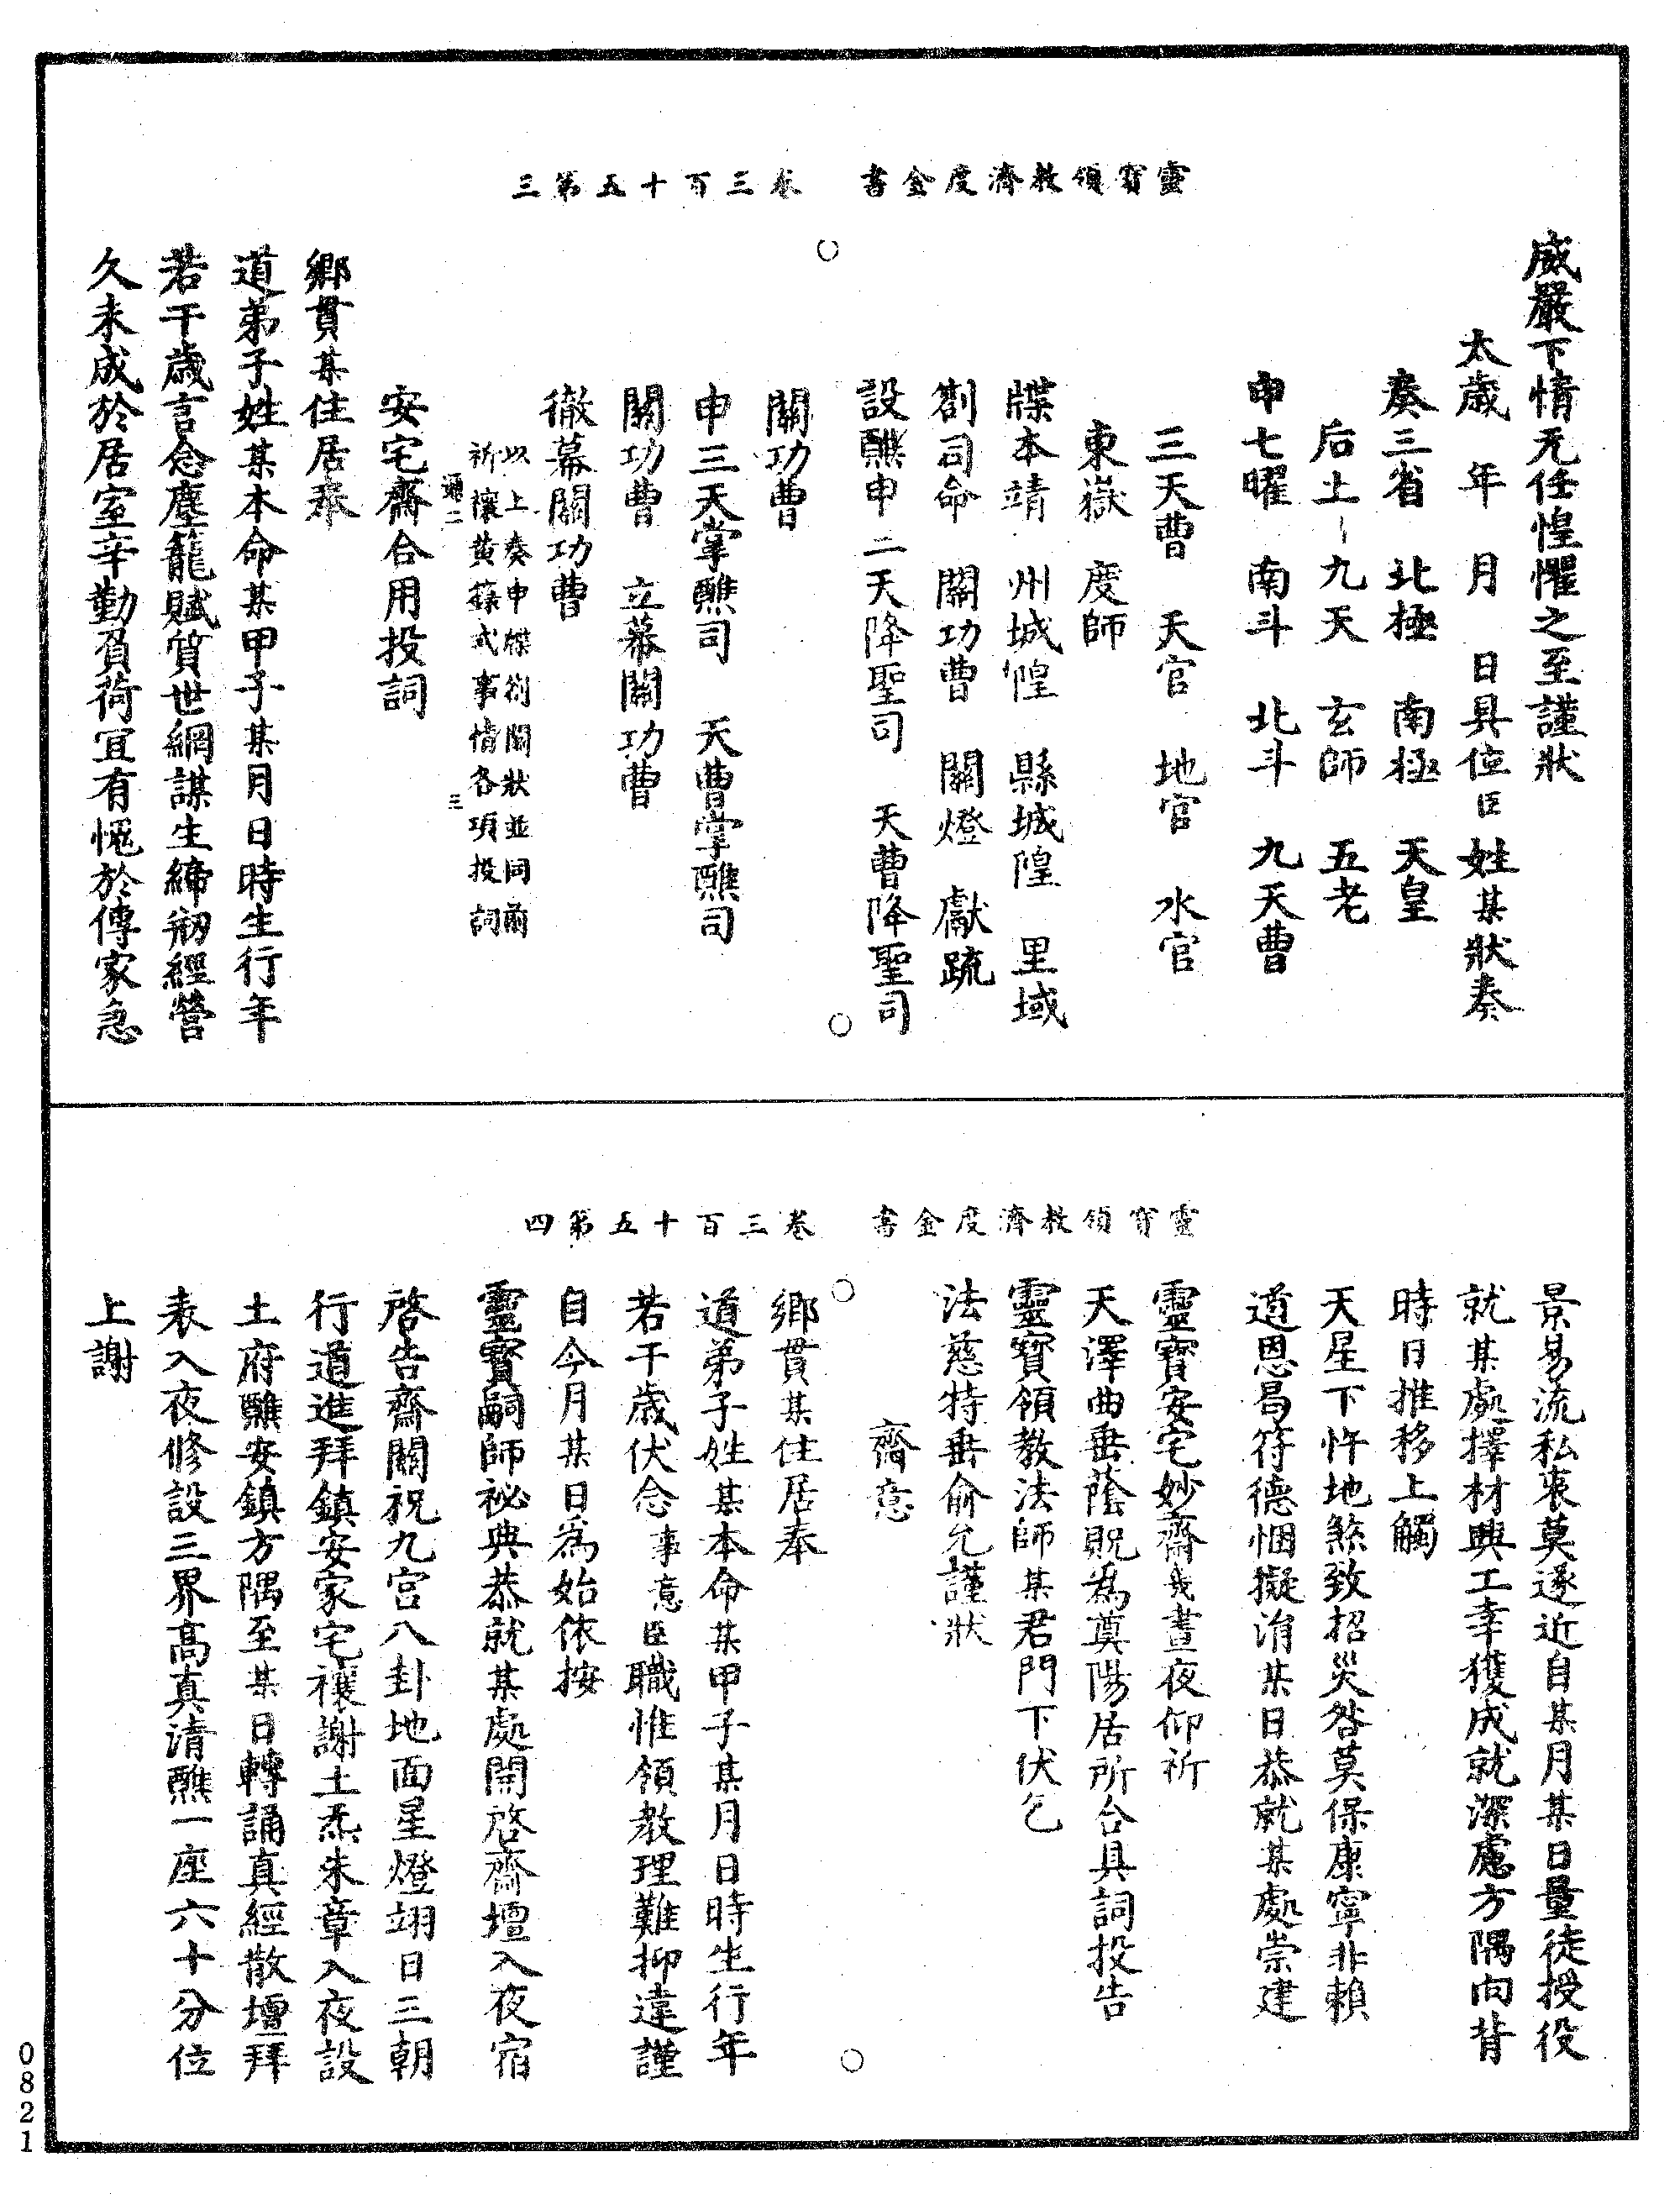 靈寶領教濟度金書　卷三百十五第三
威嚴下情无任惶懼之至謹狀
太歲　年　月　日具位臣姓某狀奏
奏三省　北極　南極　天皇
后土　九天　玄師　五老
申七曜　南斗　北斗　九天曹
三天曹　天官　地官　水官
東嶽　度師
牒本靖　州城隍　縣城隍　里域
劄司命　關功曹　關燈　獻疏
設醮申　二天降聖司　天曹降聖司
關功曹
申三天掌醮司　天曹掌醮司
關功曹　立幕關功曹
徹幕關功曹
以上奏申牒劄關狀並同前
祈禳黃籙式事情各項投詞
三
安宅齋合用投詞
鄉貫某住居奉
道弟子姓某本命某甲子某月日時生行年
若干歲言念塵籠賦質世網謀生締剏經營
久未成於居室辛勤負荷冝有愧於傳家急
靈寶領教濟度金書　卷三百十五第四
景易流私衷莫遂近自某月某日量徒授役
就某處擇材興工幸獲成就深慮方隅向背
時日推移上觸
天星下忤地煞致招災咎莫保康寧非賴
道恩曷符德悃擬涓某日恭就某處崇建
靈寶安宅妙齋幾晝夜仰祈
天澤曲垂蔭貺為奠陽居所合具詞投告
靈寶領教法師某君門下伏乞
法慈特垂俞允謹狀
齋意
鄉貫某住居奉
道弟子姓某本命某甲子某月日時生行年
若干歲伏念事意臣職惟領教理難抑違謹
自今月某日為始依按
靈寶嗣師祕典恭就某處開啓齋壇入夜宿
啓告齋關祝九宮八卦地面星燈翊日三朝
行道進拜鎮安家宅禳謝土炁朱章入夜設
土府醮安鎮方隅至某日轉誦真經散壇拜
表入夜修設三界高真清醮一座六十分位
上謝
0821